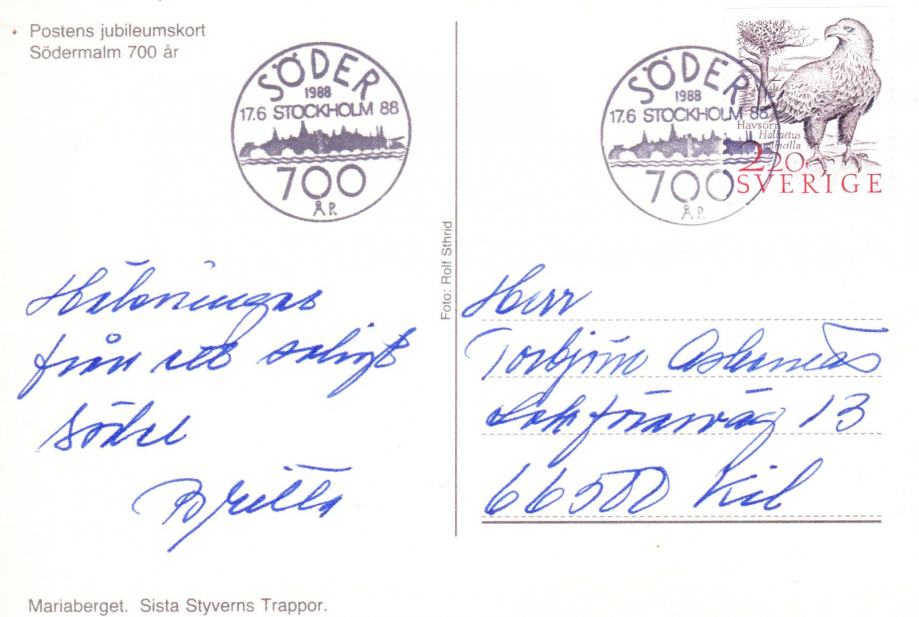 Postens jubileumskort
Södermalm 700 år
SÖDER
1988
17.6 STOCKHOLM 88
700
ÅR
SÖDER
1988
17.6 STOCKHOLM 88
700
ÅR
Havsörn
Haliaetus
albicilla
2.20
SVERIGE
Hälsningar
från ett soligt
Söder
Britta
Foto: Rolf Sthrid
Herr
Torbjörn
Lokförarväg 13
66500 Kil
Mariaberget. Sista Styverns Trappor.